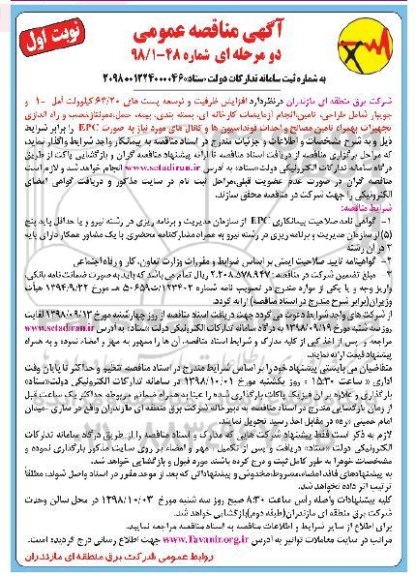 آگهی مناقصه عمومی
دو مرحله ای شماره ۴۸-۹۸/۱
نوبت اول
به شماره ثبت سامانه تدارکات دولت «ستاد» ۲۰۹۸۰۰۱۲۲۴۰۰۰۰۴۶
شرکت برق منطقه ای مازندران درنظردارد افزایش ظرفیت و توسعه پست های ۶۳/۲۰ کیلوولت آمل ۱۰- و
جویبار شامل طراحی، تامین، انجام آزمایشات کارخانه ای، بسته بندی، بیمه، حمل، مونتاژ، نصب و راه اندازی
تجهیزات بهمراه تامین مصالح و احداث فونداسیون ها و کانال های مورد نیاز به صورت EPC را برابر شرایط
ذیل و به شرح مشخصات و اطلاعات و جزئیات مندرج در اسناد مناقصه به پیمانکار واجد شرایط واگذار نماید،
که مراحل برگزاری مناقصه از دریافت اسناد مناقصه تا ارائه پیشنهاد مناقصه گران و بازگشایی پاکت از طریق
درگاه سامانه تدارکات الکترونیکی دولت «ستاد» به آدرس www.setadiran.ir انجام خواهد شد و لازم است
مناقصه گران در صورت عدم عضویت قبلی، مراحل ثبت نام در سایت مذکور و دریافت گواهی امضای
الکترونیکی را جهت شرکت در مناقصه محقق سازند.
شرایط مناقصه:
۱- گواهی نامه صلاحیت پیمانکاری EPC از سازمان مدیریت و برنامه ریزی در رشته نیرو و یا حداقل پایه پنج
(۵) از سازمان مدیریت و برنامه ریزی در رشته نیرو به همراه مشارکتنامه محضری با یک مشاور همکار دارای پایه
۳ در آن رشته
۲- گواهینامه تایید صلاحیت ایمنی بر اساس ضوابط و مقررات وزارت تعاون، کار و رفاه اجتماعی
۳- مبلغ تضمین شرکت در مناقصه: ۲.۲۰۸.۵۷۸.۹۴۷ ریال تمام می باشد که باید به صورت ضمانت نامه بانکی،
واریز وجه و یا یکی از موارد مندرج در تصویب نامه شماره ۱۲۳۴۰۲/ت۵۰۶۵۹ هـ مورخ ۱۳۹۴/۹/۲۲ هیات
وزیران (برابر شرح مندرج در اسناد مناقصه) ارائه گردد.
از شرکت های واجد شرایط دعوت می گردد جهت دریافت اسناد مناقصه از روز چهارشنبه مورخ ۱۳۹۸/۰۹/۱۳ لغایت
روز سه شنبه مورخ ۱۳۹۸/۰۹/۱۹ به درگاه سامانه تدارکات الکترونیکی دولت «ستاد» به آدرس www.setadiran.ir
مراجعه و پس از اخذ کپی از کلیه مدارک و شرایط اسناد مناقصه، آن ها را ممهور به مهر و امضاء نموده و به همراه
پیشنهاد قیمت ارائه نمایند.
متقاضیان می بایستی پیشنهاد خود را بر اساس شرایط مندرج در اسناد مناقصه تنظیم و حداکثر تا پایان وقت
اداری « ساعت ۱۵:۳۰ » روز یکشنبه مورخ ۱۳۹۸/۱۰/۰۱ در سامانه تدارکات الکترونیکی دولت «ستاد»
بارگذاری و علاوه بر آن فیزیک پاکات بارگذاری شده را عینا به همراه ضمائم مربوطه حداکثر یک ساعت قبل
از زمان بازگشایی مندرج در اسناد مناقصه به دبیرخانه شرکت برق منطقه ای مازندران واقع در ساری -میدان
امام خمینی (ره)- در مقابل اخذ رسید تحویل نمایند.
لازم به ذکر است فقط پیشنهاد شرکت هایی که مدارک و اسناد مناقصه را از طریق درگاه سامانه تدارکات
الکترونیکی دولت «ستاد» دریافت و پس از تکمیل ، مهر و امضاء بر روی سایت مذکور بارگذاری نموده و
مشخصات خود را به طور کامل ثبت و درج کرده باشند، مورد قبول و بازگشایی خواهد شد.
به پیشنهادهای فاقد امضاء، مشروط، مخدوش و پیشنهاداتی که بعد از موعد مقرر در اسناد واصل شوند، مطلقاً
ترتیب اثر داده نخواهد شد.
کلیه پیشنهادات واصله راس ساعت ۸:۳۰ صبح روز سه شنبه مورخ ۱۳۹۸/۱۰/۰۳ در محل سالن وحدت
شرکت برق منطقه ای مازندران (طبقه دوم) بازگشایی خواهد شد.
برای اطلاع از سایر شرایط و اطلاعات مناقصه به اسناد مناقصه مراجعه نمایید.
مراتب در سایت معاملات توانیر به آدرس www.Tavanir.org.ir جهت اطلاع رسانی درج گردیده است.
روابط عمومی شرکت برق منطقه ای مازندران